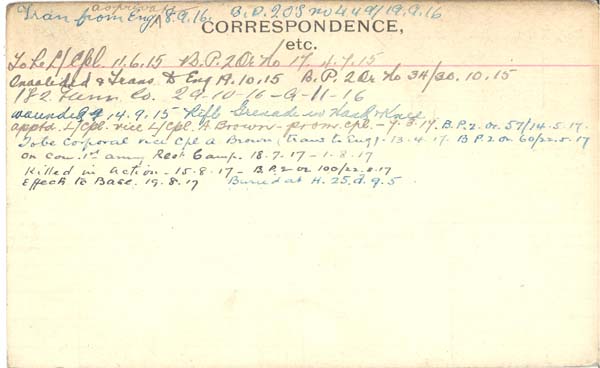 as private
Tran from Eng 8.9.16. B.P.2 OS no 449/19.9.16
CORRESPONDENCE,
etc.
To be L/Cpl. 11.6.15 B.P. 2 Or No 17. 4.7.15
Invalided & Trans to Eng 19.10.15 B.P. 2 Or No 34/30.10.15
182 Tunn. Co. 29-10-16 - 9-11-16
wounded 14.9.15 Rifle Grenade in Knee
apptd. L/Cpl. vice L/Cpl. A Brown prom. Cpl. - 7.3.17. B.P. 2 or. 57/14.5.17.
To be Corporal vice Cpl A Brown, trans to Eng. 13.4.17. B.P. 2. or. 60/22.5.17
on con. 1st army Rest Camp. 18.7.17 - 1.8.17
Killed in Action - 15.8.17 - B.P.2 or 100/22.8.17
Effects to Base. 19.8.17 Buried at H.25.d.9.5